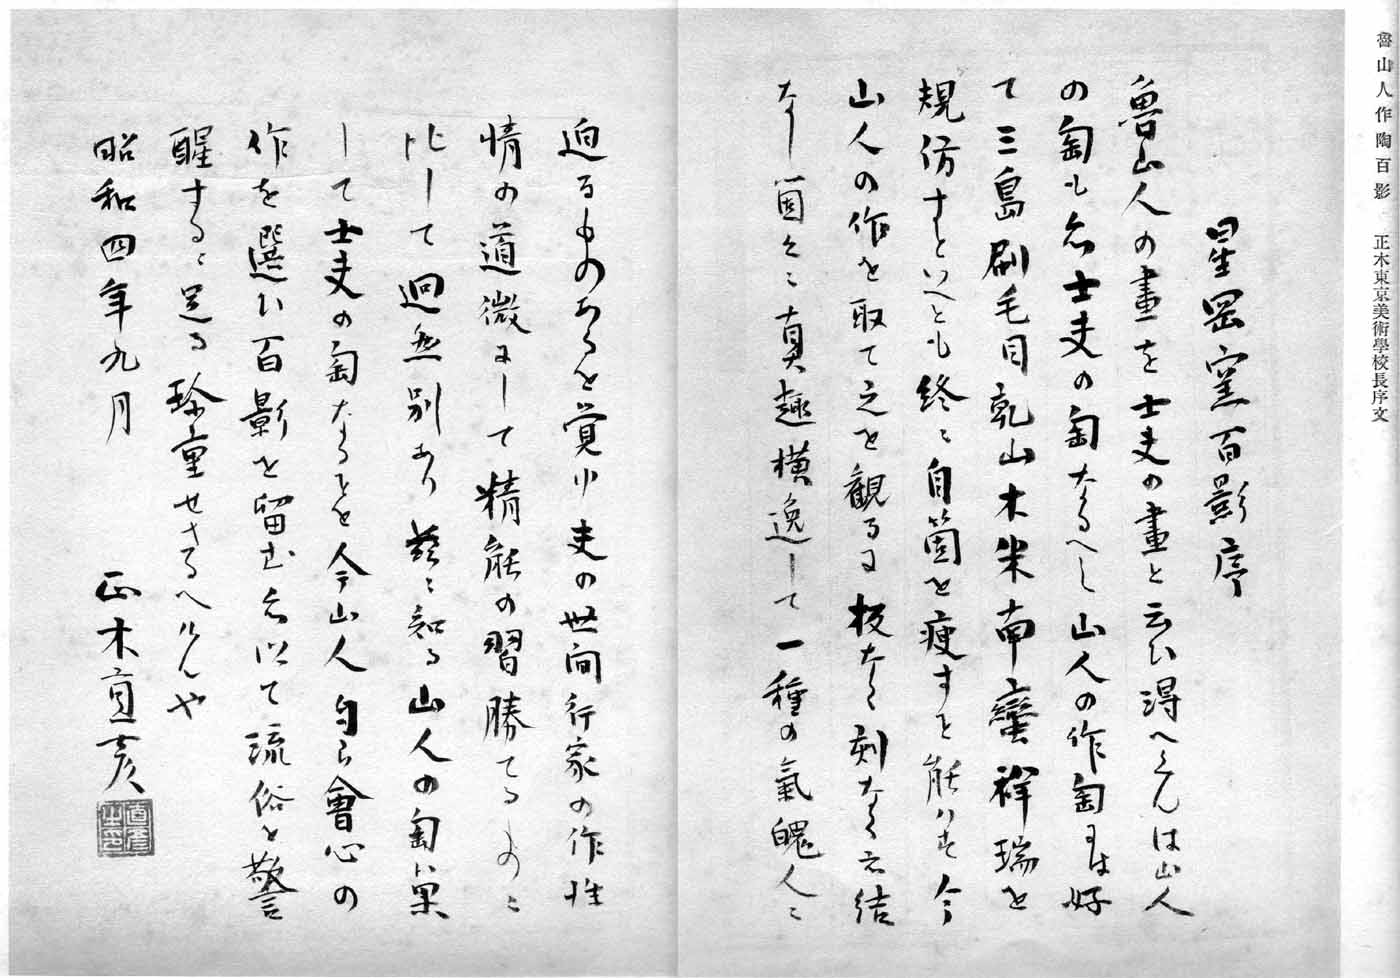 魯山人作陶百影　正木東京美術學校長序文
星岡窯百影序
魯山人の畫を士夫の畫と云ひ得へくんは山人
の匋も亦士夫の匋なるへし山人の作匋すは好
て三島刷毛目乾山木米南蠻祥瑞を
規仿すといへとも終ニ自箇を痩すを能ハす今
山人の作を取て之を観るに板なく刻なく亦結
なし箇々ニ真趣横逸して一種の氣魄人ニ
迫るものあるを覚ゆ夫の世間行家の作性
情の道微にして精能の習勝てるものニ
比して迥然別あり茲ニ知る山人の匋は果
して士夫の匋なることを今山人自ら會心の
作を選ひ百影を留む亦以て流俗を警
醒するニ足る珍重せさるへけんや
昭和四年九月
正木直彦